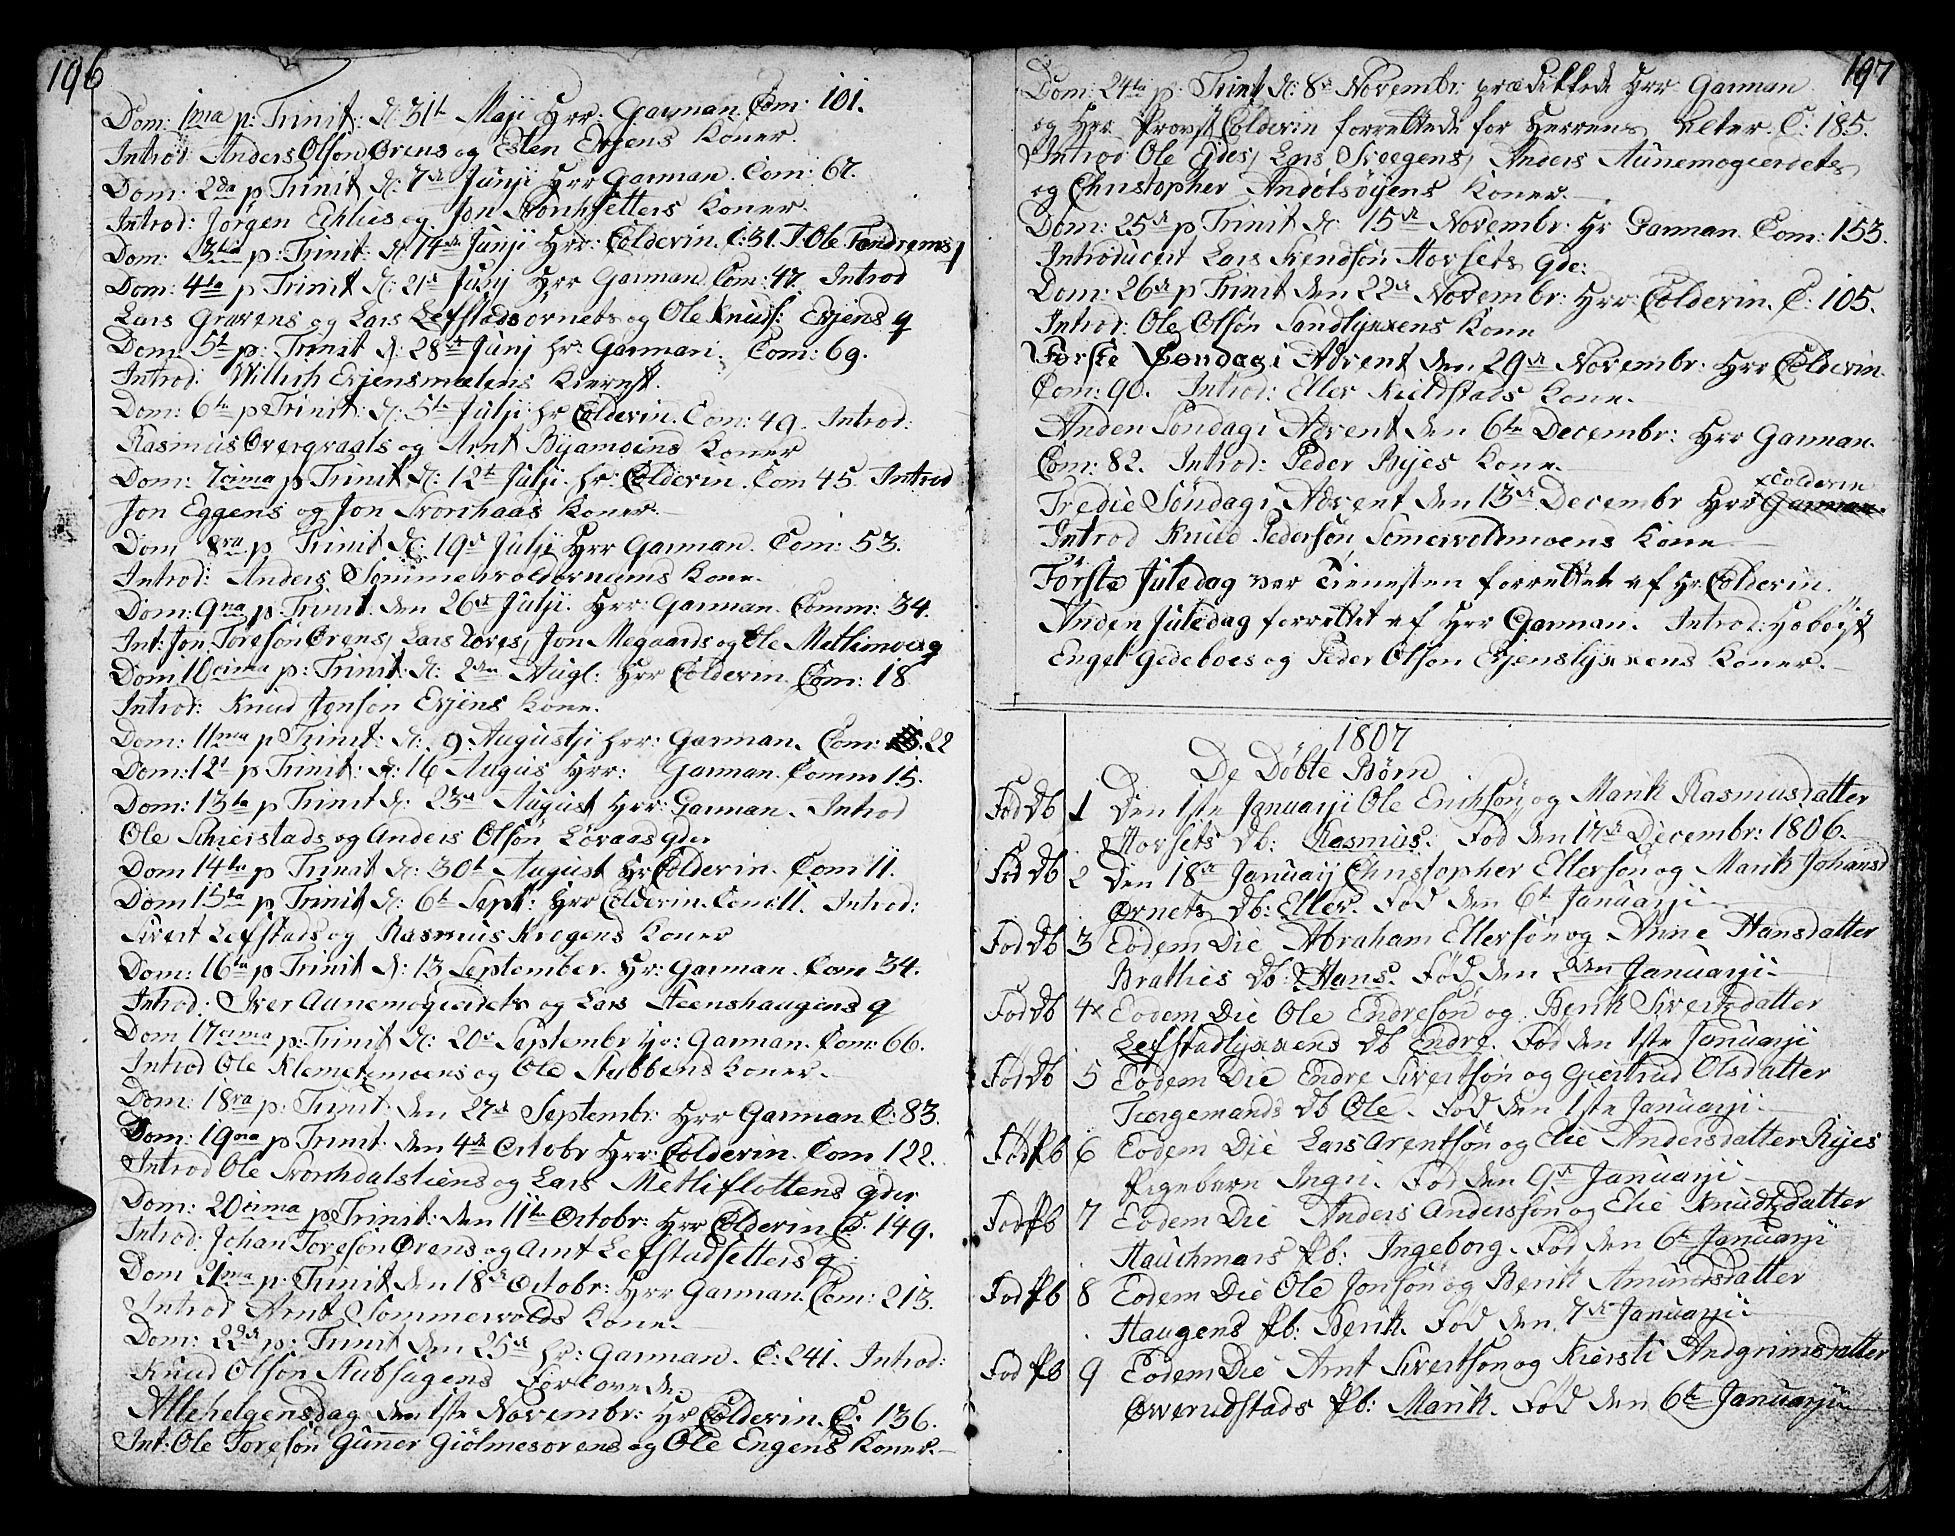 196
Dom: 1ma p: Trinit: d: 31t Maji Hrr: Garman. Com: 101.
Introd: Anders Olson Ørens og Esten Evjens Koner.
Dom: 2da p Trinit d: 7de Junji Hrr Garman. Com: 67.
Introd: Jørgen Ehlies og Jon Storchsetters Koner.
Dom: 3tia p: Trinit: d: 14de Junji Hrr: Colderin. C: 31. I. Ole Fandrems q
Dom: 4ta p Trinit d: 21t Junj Hrr Garman. Com: 47. Introd
Lars Gravens og Lars Lefstadsørnets og Ole Knuds: Evjens q
Dom: 5t p: Trinit d: 28de Junj hr: Garman. Com: 69.
Introd: Willich Evjensmælens Kierest.
Dom: 6ta p Trinit: d: 5te Julji hr Colderin. Com: 49. Introd:
Rasmus Overgraals og Arnt Byamoens Koner
Dom: 7cima p Trinit d: 12t Julji. hr: Colderin. Com 45. Introd
Jon Eggens og Jon Svorchaas Koner.
Dom 8va p Trinit d: 19de Julji Hrr Garman. Com: 53.
Introd: Anders Sommervoldørnums Kone.
Dom: 9na p: Trinit. den 26de Julji. Hrr: Garman. Comm: 34.
Int: Jon Toresøn Ørens, Lars Vores, Jon Megaards og Ole Metlimoes q
Dom 10cima p: Trinit: d: 2den Augl: Hrr Colderin. Com: 18
Introd: Knud Jonson Evjens Kone.
Dom: 11ma p Trinit: d: 9 Augustji hrr: Garman. Com: 22
Dom: 12t p Trinit: d: 16 Augus Hrr: Garman. Comm 15.
Dom: 13ta p Trinit d: 23de August Hrr: Garman. Introd
Ole Schierstads og Anders Olsøn Løvaas qder
Dom 14ta p Trinit d: 30t August Hr Colderin. Com 11.
Dom 15ta p Trinit d: 6t Sept: Hrr Colderin. Com: 11. Introd:
Sivert Lefstads og Rasmus Krogens Koner
Dom: 16ta p Trinit d: 13 September. Hr: Garman. Com 34.
Introd: Iver Aunemogierdets og Lars Steenshaugens q
Dom 17cima p: Trinit d: 20de Septembr Hr: Garman. Com: 66.
Introd Ole Klemetsmoens og Ole Stubbens Koner.
Dom: 18va p: Trinit: den 27de Septembr: Hrr Garman. C: 83.
Dom: 19na p Trinit. den 4de Octobr Hrr: Colderin. Com 122.
Introd Ole Svorchdalstiens og Lars Metliflottens qder
Dom: 20cima p Trinit: den 11te Octobr: Hrr Colderin. C: 149.
Introd: Johan Toreson Ørens og Arnt Lefstadsetters q
Dom 21ma p: Trinit den 18de Octobr: Hrr Garman. Com: 213.
Introd Arnt Sommervolds Kone.
Dom: 22de p: Trinit den 25de hr: Garman. C: 241. Introd:
Knud Olson Stubsagens Forlovede.
Allehelgensdag den 1ste Novembr: Hr Colderin. C. 136.
Int: Ole Toresøn Guner Giølmesørens og Ole Engens Koner.
197
Dom: 24ta p: Trinit d: 8de Novembr: prædikkede Hrr Garman
og Hrr Provst Colderin forrettede for Herrens Alter. C: 185.
Introd Ole Eides, Lars Sveegens, Anders Aunemogierdets
og Christopher Andølsøyens Koner.
Dom: 25de p Trinit d: 15de Novembr: Hr Garman. Com: 153.
Introducert Lars Svendsøn Horsets Qde:
Dom: 26de p Trinit den 22de Novembr: Hrr: Colderin. C: 105.
Introd: Ole Olsøn Sandlyxxens Kone
Første Søndag i Advent den 29de Novembr: Hrr Colderin.
Com: 90. Introd: Eller Kieldstads Kone.
Anden Søndag i Advent den 6te Decembr: Hrr Garman.
Com: 82. Introd: Peder Byes Kone.
xColderin
Tredie Søndag i Advent den 13de Decembr Hrr Garman.
Introd Knud Pedersøn Somervoldmoens Kone
Første Juledag var Tienesten forrettet af Hr Colderin.
Anden Juledag forrettet af Hrr Garman. Introd: Hoboist
Engel Gedeboes og Peder Olson Evjenslyxxens Koner.
1807
De Døbte Børn
Fød Db 1 Den 1ste Januarji Ole Erichsøn og Marit Rasmusdatter
Horsets Db: Rasmus. Fød den 17de Decembr: 1806.
Fød Db 2 Den 18de Januarj Christopher Ellersøn og Marit Johansd
Ørnets Db: Eller. Fød den 6t Januarji
Fød Db 3 Eodem Die Abraham Ellersøn og Anne Hansdatter
Brathes Db: Hans. Fød den 2den Januarji
Fød Db 4x Eodem Die Ole Endresøn og Berit Sivertsdatter
Lefstadlyxxens Db Endre. Fød den 1ste Januarji
Fød Db 5 Eodem Die Endre Sivertsøn og Giertrud Olsdatter
Torgemands Db Ole. Fød den 1ste Januarji
Fød Pb 6 Eodem Die Lars Arentsøn og Elie Andersdatter Ryes
Pigebarn Ingri. Fød den 9de Januarji
Fød Pb 7 Eodem Die Anders Andersson og Elie Knudtsdatter
Hauchmars Pb: Ingeborg. Fød den 6te Januarji
Fød Pb 8 Eodem Die Ole Jonsøn og Berit Amundsdatter
Haugens Pb: Berit. Fød den 7de Januarji
Fød Pb 9 Eodem Die Arnt Sivertsøn og Kiersti Andgrimsdatter
Owerudstads Pb: Marit. Fød den 6te Januarji